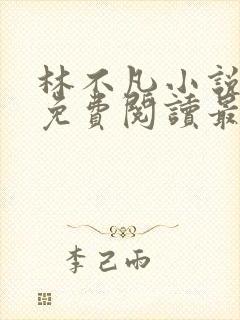 林不凡小說
免費閱讀最
李己雨